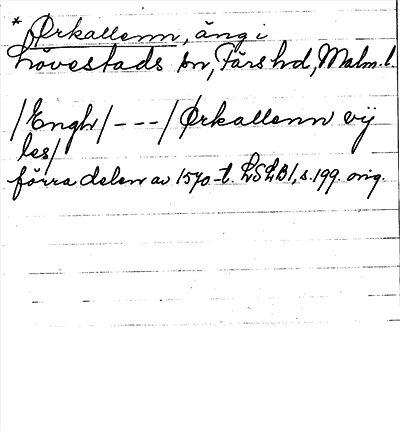 * Ørkallenn, äng i
Lövestads sn, Färs hd, Malm. l.
/Engh/ - - - / Ørkallenn vij
les/
förra delen av 1570-t. LSLB1, s. 199. orig.